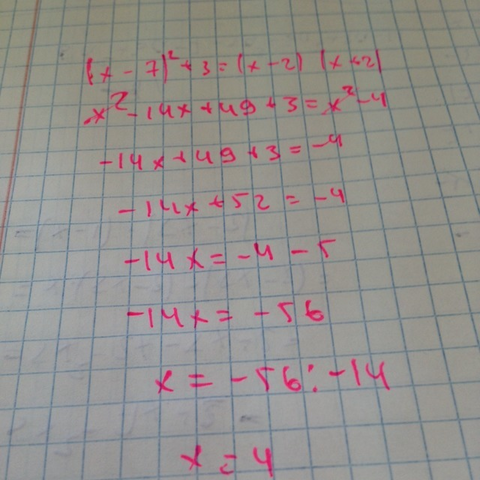 (x - 7)² + 3 = (x - 2) (x + 2)
x² - 14x + 49 + 3 = x² - 4
-14x + 49 + 3 = -4
-14x + 52 = -4
-14x = -4 - 5
-14x = -56
x = -56 : -14
x = 4